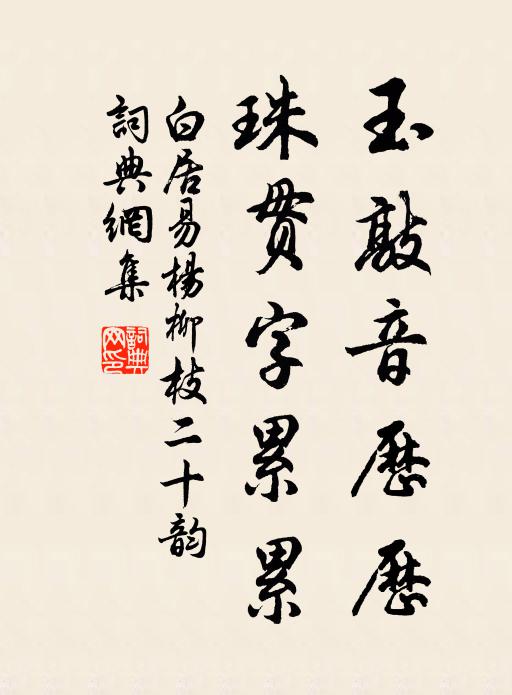 玉敲音歷歷
珠貫字累累
白居易楊柳枝二十韵
詞典網集
詞典
网印